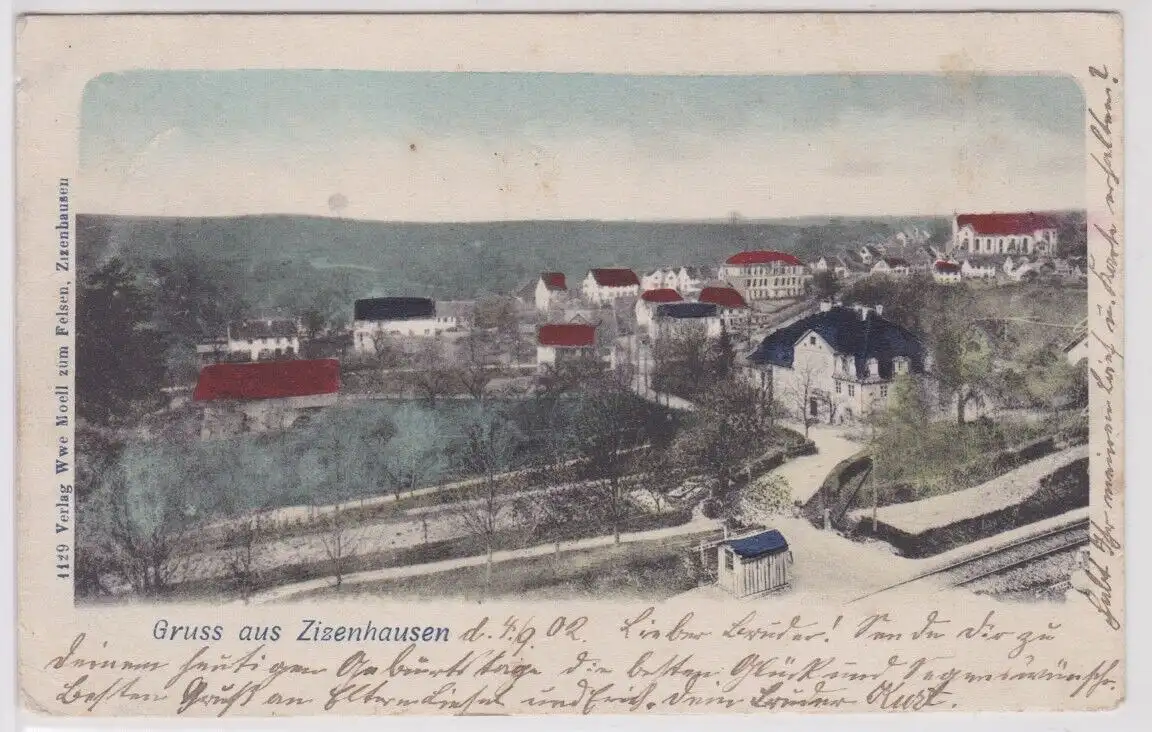 1129 Verlag Wwe Moell zum Felsen, Zizenhausen
Gruss aus Zizenhausen d. 4./9 02. Lieber Bruder! Sende Dir zu
Deinem heutigen Geburtstage die besten Glück und Segenswünsche.
Besten Gruß an Eltern Liesel und Erich. Dein Bruder Kurt.
Habt Ihr meinen Brief u. Karte erhalten?